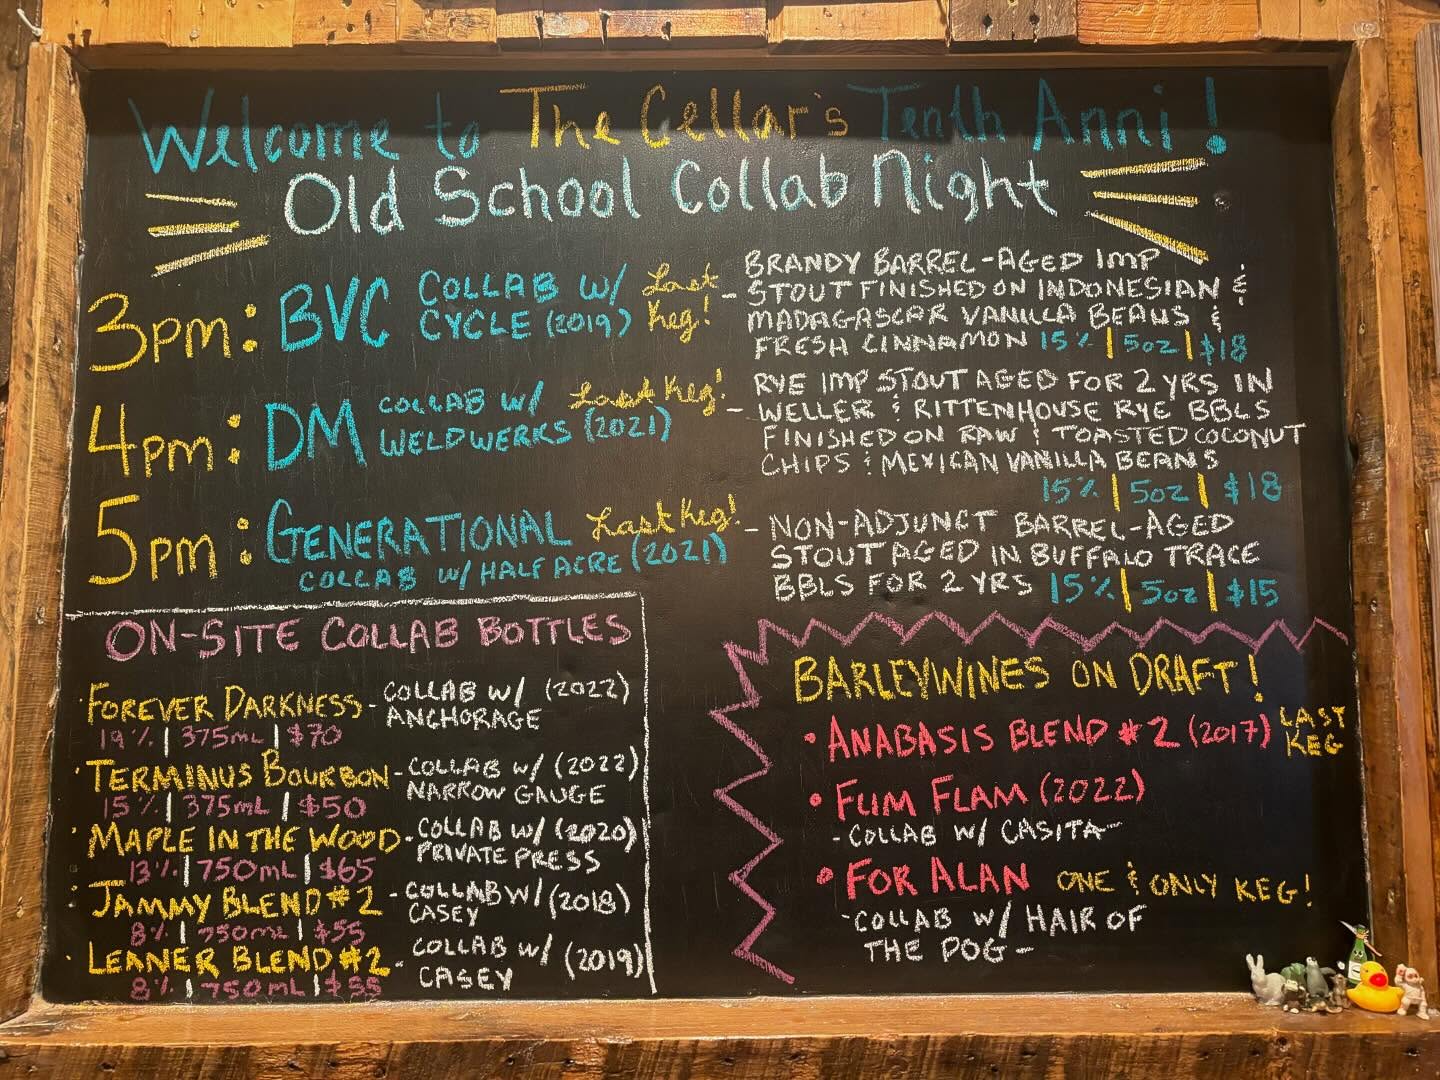 Welcome to The Cellar's Tenth Anni!
Old School Collab Night
3PM: BVC COLLAB W/ CYCLE (2019) Last Keg!
- BRANDY BARREL-AGED IMP
STOUT FINISHED ON INDONESIAN &
MADAGASCAR VANILLA BEANS &
FRESH CINNAMON 15% | 5oz | $18
4PM: DM COLLAB W/ WELDWERKS (2021) Last Keg!
- RYE IMP STOUT AGED FOR 2 YRS IN
WELLER & RITTENHOUSE RYE BBLS
FINISHED ON RAW & TOASTED COCONUT
CHIPS & MEXICAN VANILLA BEANS
15% | 5oz | $18
5PM: GENERATIONAL Last Keg!
COLLAB W/ HALF ACRE (2021)
- NON-ADJUNCT BARREL-AGED
STOUT AGED IN BUFFALO TRACE
BBLS FOR 2 YRS 15% | 5oz | $15
ON-SITE COLLAB BOTTLES
· FOREVER DARKNESS - COLLAB W/ (2022)
ANCHORAGE
19% | 375mL | $70
· TERMINUS BOURBON - COLLAB W/ (2022)
NARROW GAUGE
15% | 375mL | $50
· MAPLE IN THE WOOD - COLLAB W/ (2020)
PRIVATE PRESS
13% | 750mL | $65
· JAMMY BLEND #2 - COLLAB W/ (2018)
CASEY
8% | 750mL | $55
· LEANER BLEND #2 - COLLAB W/ (2019)
CASEY
8% | 750mL | $55
BARLEYWINES ON DRAFT!
• ANABASIS BLEND #2 (2017) LAST KEG
• FLIM FLAM (2022)
- COLLAB W/ CASITA -
• FOR ALAN ONE & ONLY KEG!
- COLLAB W/ HAIR OF
THE DOG -